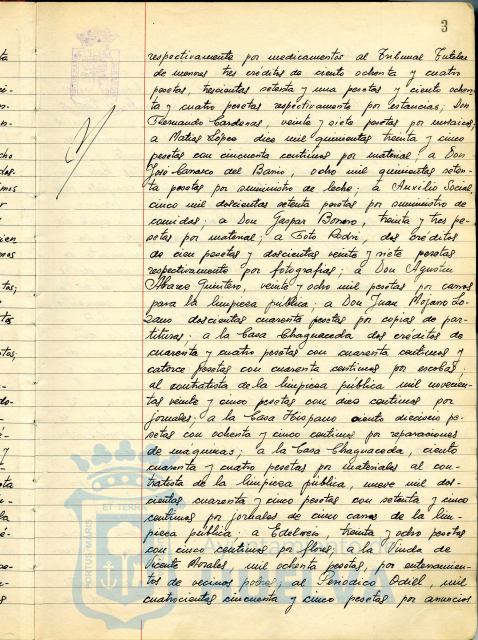 3
respectivamente por medicamentos al Tribunal Tutelar
de menores tres créditos de ciento ochenta y cuatro
pesetas, trescientas setenta y una pesetas y ciento ochen-
ta y cuatro pesetas respectivamente por estancias; Don
Fernando Cardenas, veinte y siete pesetas por mosaicos;
a Matias López diez mil quinientas treinta y cinco
pesetas con cincuenta centimos por material; a Don
José Carrasco del Barrio, ocho mil quinientas seten-
ta pesetas por suministro de leche; a Auxilio Social
cinco mil doscientas setenta pesetas por suministro de
comidas; a Don Gaspar Bonero, treinta y tres pe-
setas por material; a Foto Rodri, dos créditos
de cien pesetas y doscientas veinte y siete pesetas
respectivamente por fotografias; a Don Agustin
Alvarez Quintero, veinte y ocho mil pesetas por carros
para la limpieza pública; a Don Juan Mojano Lo-
zano doscientas cuarenta pesetas por copias de par-
tituras; a la Casa Chaguaceda dos créditos de
cuarenta y cuatro pesetas con cuarenta centimos y
catorce pesetas con cuarenta centimos por escobas;
al contratista de la limpieza pública mil novecien-
tas veinte y cinco pesetas con diez centimos por
jornales; a la Casa Hispano ciento dieciseis pe-
setas con ochenta y cinco centimos por reparaciones
de maquinas; a la Casa Chaguaceda, ciento
cuarenta y cuatro pesetas por materiales al con-
tratista de la limpieza pública, nueve mil dos-
cientas cuarenta y cinco pesetas con setenta y cinco
centimos por jornales de cinco carros de la lim-
pieza pública; a Edelweis treinta y ocho pesetas
con cinco centimos por flores; a la Viuda de
Vicente Morales mil ochenta pesetas, por enterramien-
tos de vecinos pobres; al Periodico Odiel, mil
cuatrocientas cincuenta y cinco pesetas por anuncios
PORTUS MARIS ET TERRAE
HUELVA